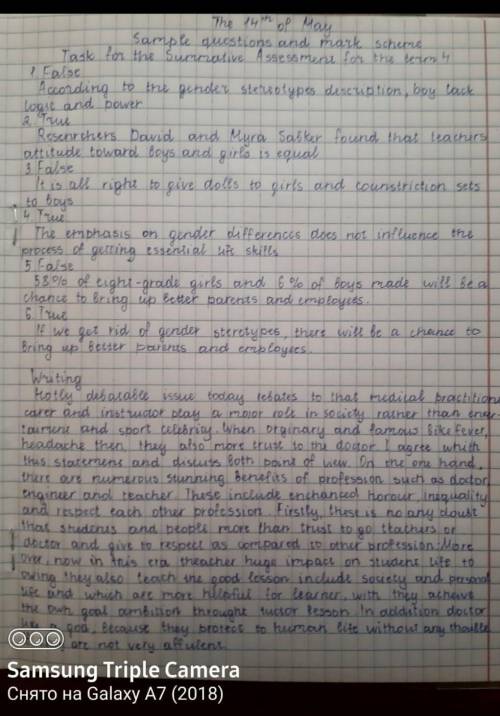 The 14th of May
Sample questions and mark scheme
Task for the Summative Assessment for the term 4
1. False
According to the gender stereotypes description, boy lack
logic and power
2. True
Researchers David and Myra Sadker found that teachers
attitude toward boys and girls is equal
3. False
It is all right to give dolls to girls and counstriction sets
to boys
4. True
The emphasis on gender differences does not influence the
process of getting essential life skills
5. False
53% of eight-grade girls and 6% of boys made will be a
chance to bring up better parents and employees.
6. True
If we get rid of gender sterotypes, there will be a chance to
bring up better parents and employees.
Writing
Hotly debatable issue today rebates to that medical practitione
carer and instructor play a major role in society rather than
tairment and sport celebrity. When orginary and famous like fever,
headache then they also more trust to the doctor I agree which
this statemens and discuss both point of view. On the one hand,
there are numerous stunning benefits of profession such as doctor
engineer and teacher These include enchanced horour, inequality
and respect each other profession. Firstly, these is no any doubt
that students and people more than trust to go teathers or
doctor and give to respect as compared to other profession. More
over, now in this era theather huge impact on student life to
owing they also teach the good lesson include society and personal
life and which are more helpful for learner, with they achieve
the own goal ambition throught tuctor lesson. In addition doctor
like a goa, because they protect to human life without any
are not very affulent.
Samsung Triple Camera
Снято на Galaxy A7 (2018)